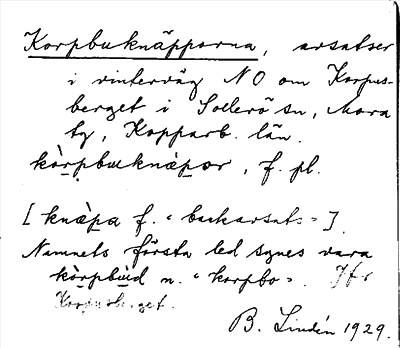 Korpbuknäpporna, avsatser
i vinterväg NO om Korpus-
berget i Sollerö sn, Mora
tg, Kopparb. län.
kòrpbuknæ̀por, f. pl.
[knæ̀pa f. "backavsats"].
Namnets första led synes vara
kòrpbùd n. "korpbo". Jfr
B. Lindén 1929.